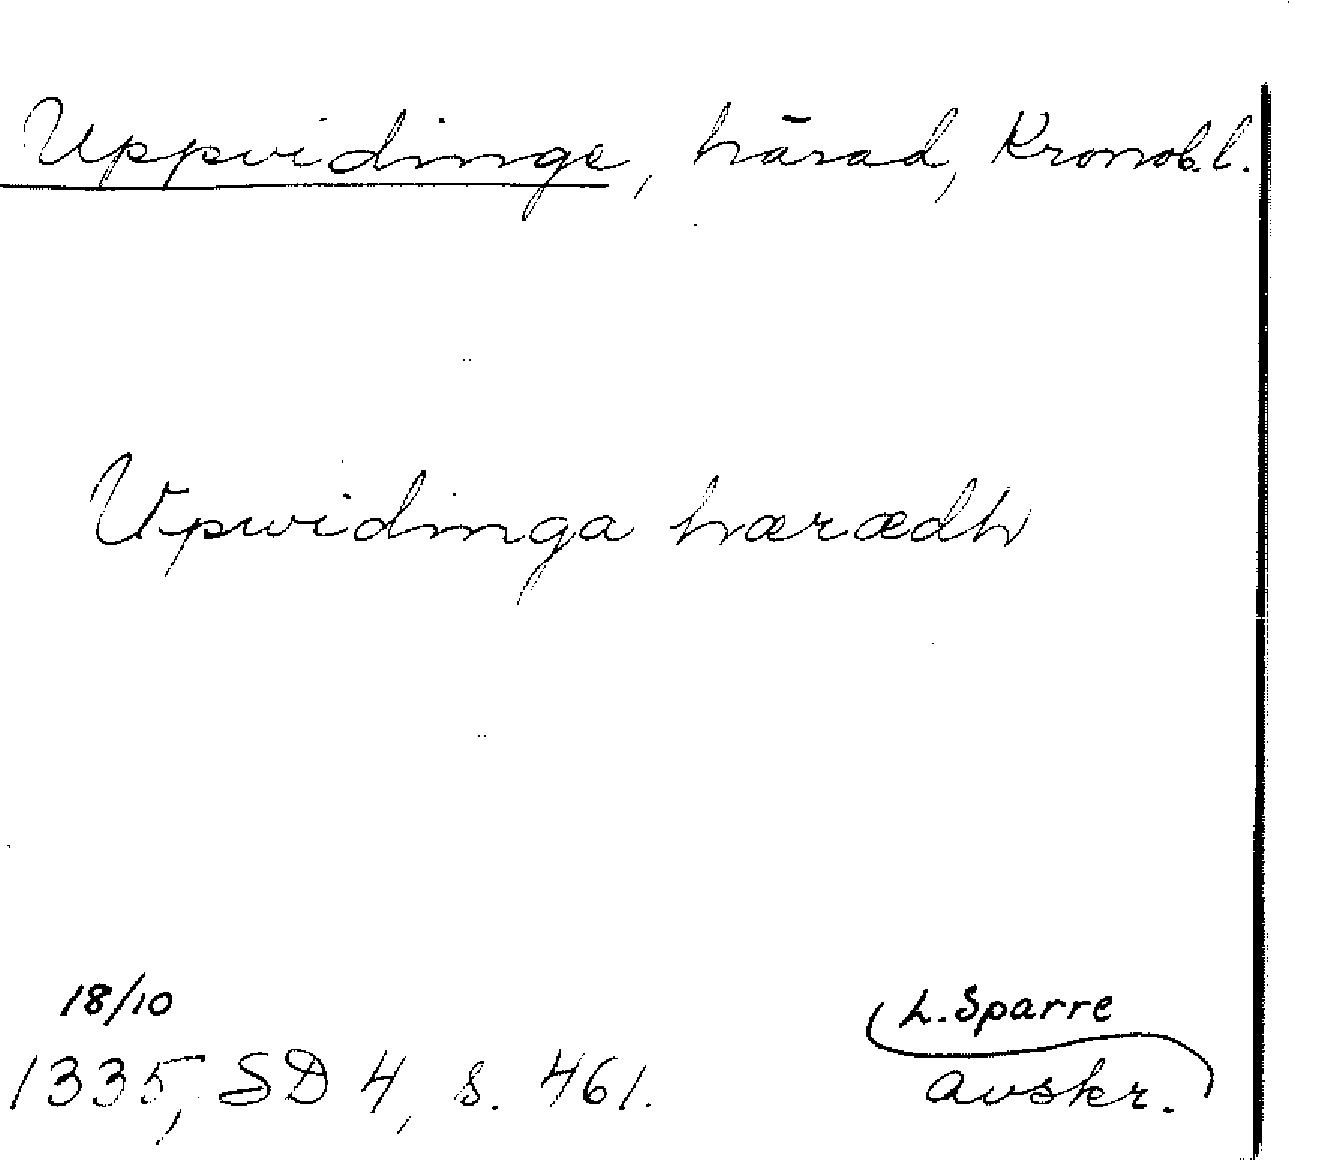 Uppvidinge, härad, Kronob.l.
Vpwidinga hærædh
18/10
L. Sparre
1335, SD 4, s. 461.
avskr.